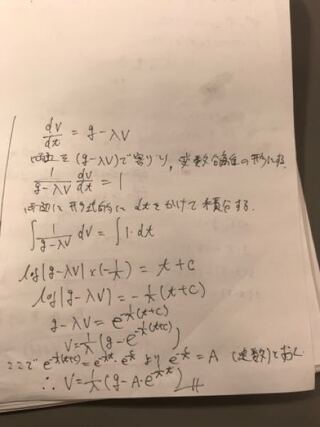 dv/dt = g-λv
両辺を(g-λv)で割り、変数分離の形にする
1/(g-λv) dv/dt = 1
両辺に形式的に dtをかけて積分する.
∫ 1/(g-λv) dv = ∫1·dt
log|g-λv|×(-1/λ) = t+c
log|g-λv| = -λ(t+c)
g-λv = e^{-λ(t+c)}
v=1/λ(g-e^{-λ(t+c)})
ここで e^{-λ(t+c)}= より = A (定数)とおく
∴ v=1/λ(g-A·e^{-λt})